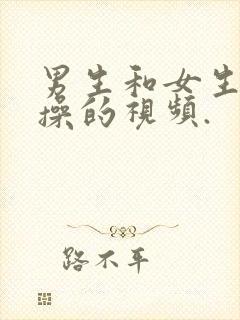 男生和女生
操的視頻.
路不平